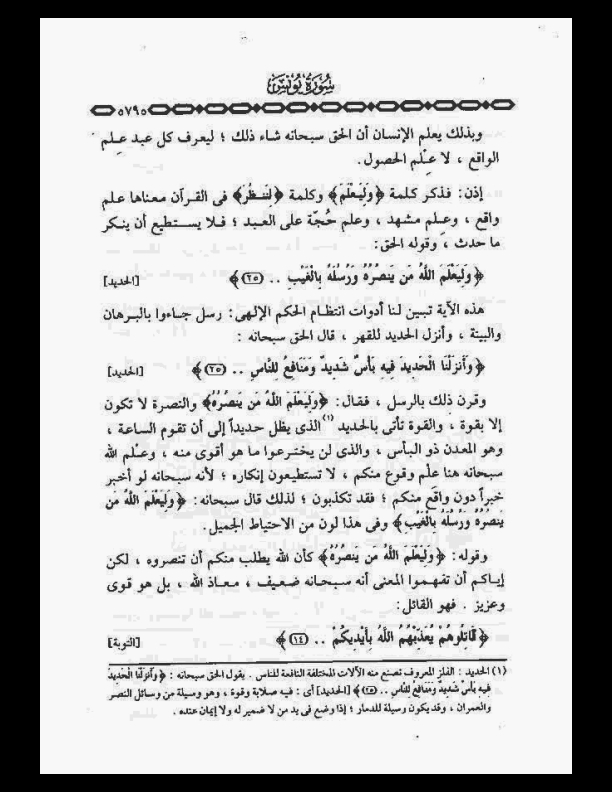 سُورَةُ يُونُسَ
٥٧٩٥
وبذلك يعلم الإنسان أن الحق سبحانه شاء ذلك ؛ ليعرف كل عبد عِلم
الواقع ، لا عِلْم الحصول .
إذن : فذكر كلمة ﴿وَلِيَعْلَمَ﴾ وكلمة ﴿لِنَنظُرَ﴾ فى القرآن معناها علم
واقع ، وعِلم مشهد ، وعلم حُجّة على العبد ؛ فلا يستطيع أن ينكر
ما حدث ، وقوله الحق :
﴿ وَلِيَعْلَمَ اللَّهُ مَن يَنصُرُهُ وَرُسُلَهُ بِالْغَيْبِ .. (٢٥) ﴾ [الحديد]
هذه الآية تبين لنا أدوات انتظام الحكم الإلهى : رسل جاءوا بالبرهان
والبينة ، وأنزل الحديد للقهر ، قال الحق سبحانه :
﴿ وَأَنزَلْنَا الْحَدِيدَ فِيهِ بَأْسٌ شَدِيدٌ وَمَنَافِعُ لِلنَّاسِ .. (٢٥) ﴾ [الحديد]
وقرن ذلك بالرسل ، فقال : ﴿وَلِيَعْلَمَ اللَّهُ مَن يَنصُرُهُ﴾ والنصرة لا تكون
إلا بقوة ، والقوة تأتى بالحديد (١) الذى يظل حديداً إلى أن تقوم الساعة ،
وهو المعدن ذو البأس ، والذى لن يخترعوا ما هو أقوى منه ، وعلْم الله
سبحانه هنا علْم وقوع منكم ، لا تستطيعون إنكاره ؛ لأنه سبحانه لو أخبر
خبراً دون واقع منكم ؛ فقد تكذبون ؛ لذلك قال سبحانه : ﴿وَلِيَعْلَمَ اللَّهُ مَن
يَنصُرُهُ وَرُسُلَهُ بِالْغَيْبِ﴾ وفى هذا لون من الاحتياط الجميل .
وقوله : ﴿وَلِيَعْلَمَ اللَّهُ مَن يَنصُرُهُ﴾ كأن الله يطلب منكم أن تنصروه ، لكن
إياكم أن تفهموا المعنى أنه سبحانه ضعيف ، معاذ الله ، بل هو قوى
وعزيز . فهو القائل :
﴿ قَاتِلُوهُمْ يُعَذِّبْهُمُ اللَّهُ بِأَيْدِيكُمْ .. (١٤) ﴾ [التوبة]
(١) الحديد : الفلز المعروف تصنع منه الآلات المختلفة النافعة للناس . يقول الحق سبحانه : ﴿وَأَنزَلْنَا الْحَدِيدَ
فِيهِ بَأْسٌ شَدِيدٌ وَمَنَافِعُ لِلنَّاسِ .. (٢٥)﴾ [الحديد] أى : فيه صلابة وقوة ، وهو وسيلة من وسائل النصر
والعمران ، وقد يكون وسيلة للدمار ؛ إذا وضع فى يد من لا ضمير له ولا إيمان عنده .